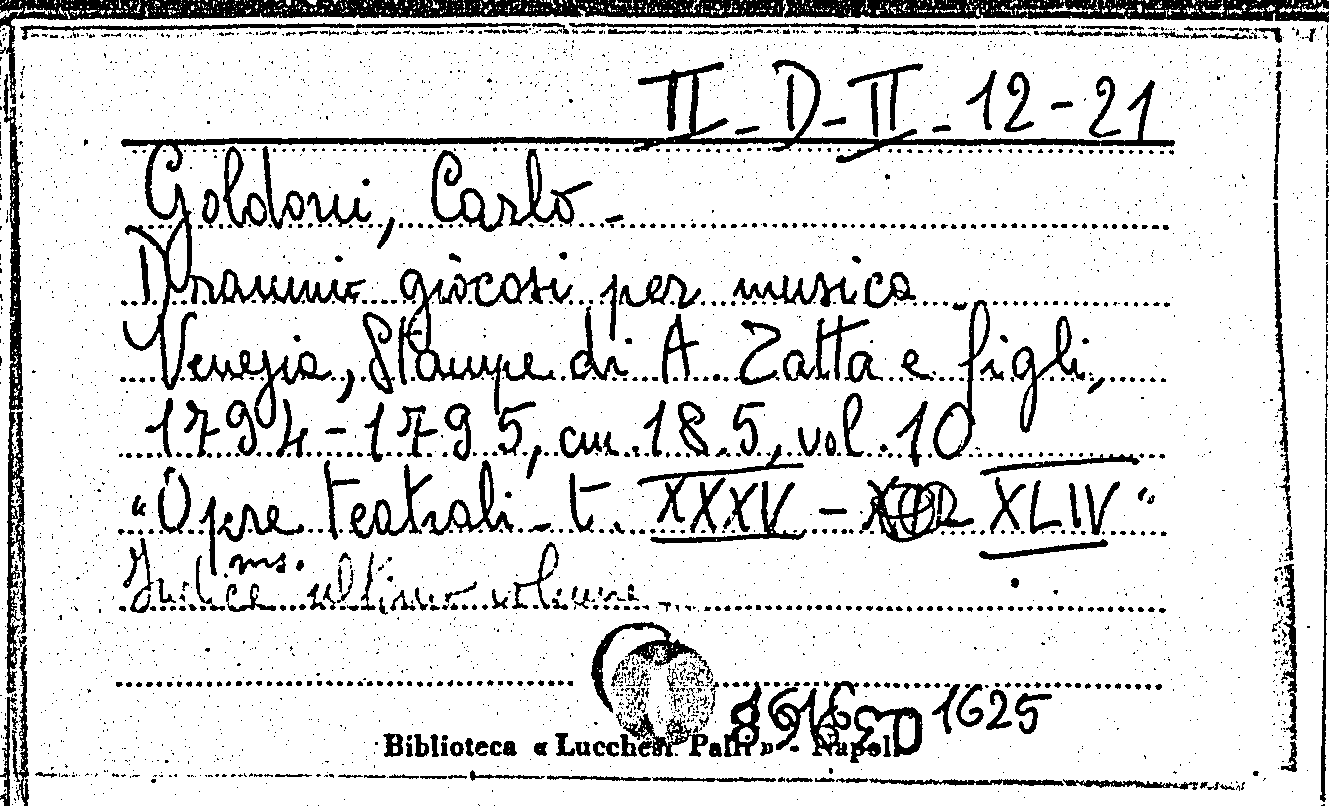 II-D-II-12-21
Goldoni, Carlo -
Drammi giocosi per musica
Venezia, Stampe di A. Zatta e figli,
1794-1795, cm. 18.5, vol. 10
"Opere teatrali - t. XXXV - XLIV"
Indice ms. ultimo volume
1625
Biblioteca « Lucchesi Palli » - Napoli